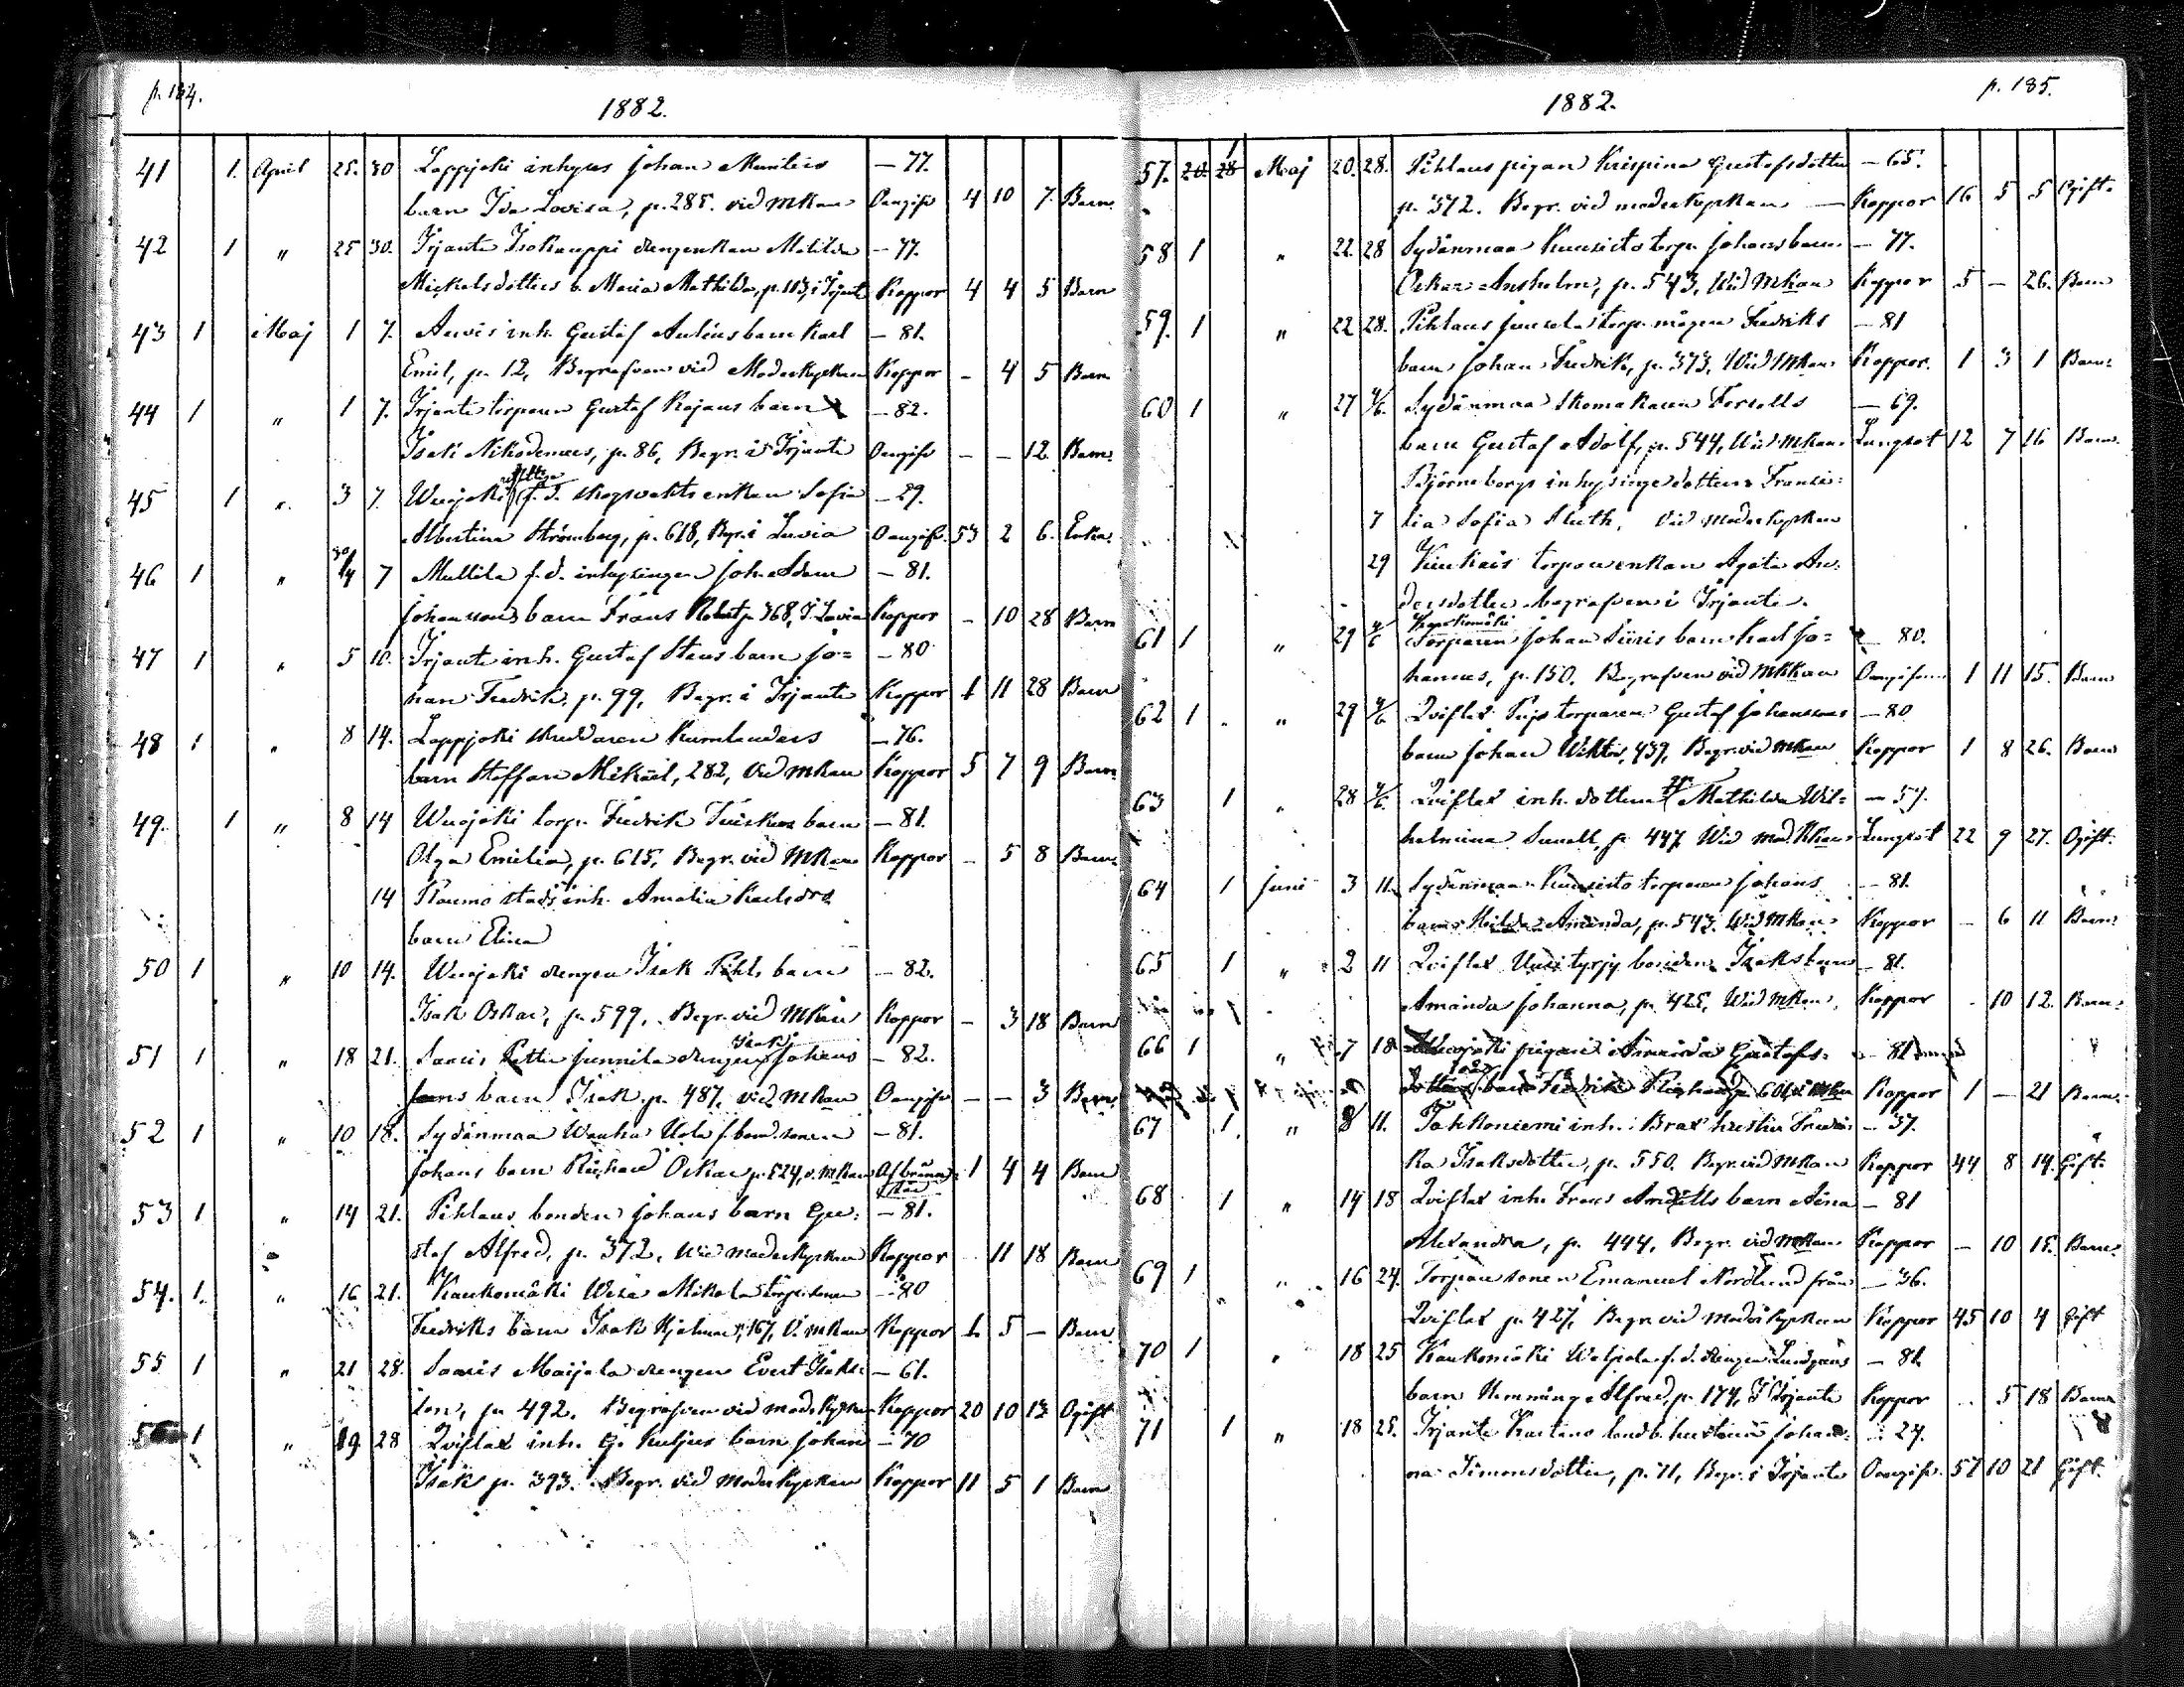 p. 184.
1882.
41 1. April 25. 30 Lappjoki inhyses Johan
barn Ida Lovisa, p. 285. vid mkan Oangifv 4 10 7. Barn.
— 77.
42 1 " 25 30. Irjante Isokauppi drengenkan Matilda — 77.
Mickelsdotters b. Maria Mathilda, p. 113, i Irjante Koppor 4 4 5 Barn
43 1 Maj 1 7. Anvis inh. Gustaf Auléns barn Karl — 81.
Emil, p. 12, Begrafven vid Moderkyrkan Koppor - 4 5 Barn
44 1 " 1 7. Irjante torparen Gustaf Rajans barn — 82.
Isak Nikodemus, p. 86, Begr. i Irjante Oangifv — — 12 Barn.
45 1 " 3 7. Wuojoki f.d. skogvakts enkan Sofia — 29.
Albertina Strömberg, p. 618, Begr. i Luvia Oangifv. 53 2 6. Enka.
46 1 " 30/4 7 Mullila f.d. inhysingen Joh. Adam — 81.
Johanssons barn Frans Robert p. 368, I Luvia Koppor - 10 28 Barn
47 1 " 5 10. Irjante inh. Gustaf Stens barn Jo= — 80
han Fredrik, p. 99, Begr. i Irjante Koppor 1 11 28 Barn
48 1 " 8 14. Lappjoki skreddaren Kumlanders — 76.
barn Staffan Mikael, 282, vid mkan Koppor 5 7 9 Barn
49. 1 " 8 14 Wuojoki torp. Fredrik barn — 81.
Olga Emilia, p. 615, Begr. vid Mkan Koppor - 5 8 Barn
14 Raumo stads inh. Amalia Karlsdrs
barn Elina
50 1 " 10 14. Wuojoki drengen Isak Pihls barn — 82.
Isak Oskar, p. 599, Begr. vid Mkan Koppor — 3 18 Barn
51 1 " 18 21. Saaris Pettu Junnila drengen Isak Johans — 82.
sons barn Isak p. 487, vid mkan Oangifv — — 3 Barn
52 1 " 10 18. Sydänmaa Wanha Uola f. bond. sonen — 81.
Johans barn Richard Oskar p. 524, v. mkan 1 4 4 Barn
53 1 " 14 21. Pihlaus bonden Johans barn Gu= — 81.
staf Alfred, p. 372, vid moderkyrkan Koppor - 11 18 Barn
54. 1. " 16 21. Kaukomäki Wesa Mikola torp. sonen — 80
Fredriks barn Isak Hjalmar, 167, v. mkan Koppor 1 5 — Barn
55 1 " 21 28. Saaris Maijala drengen Evert Isaks= — 61.
son, p. 492. Begrafven vid moderkyrkan Koppor 20 10 13 Ogift
56 1 " 19 28 Qviflax inh. G. Kuljus barn Johan — 70
Isak p. 393. Begr. vid Moderkyrkan Koppor 11 5 1 Barn
p. 185.
1882.
57. 20. 28 1 Maj 20. 28. Pihlaus pigan Krispina Gustafsdotter — 65.
p. 372. Begr. vid moderkyrkan — Koppor 16 5 5 Ogift.
58 1 " 22. 28 Sydänmaa Kuusisto torp. Johans barn — 77.
Oskar Anshelm, p. 543, Vid Mkan Koppor 5 — 26. Barn
59. 1 " 22 28. Pihlaus torp. mågen Fredriks — 81
barn Johan Fredrik, p. 373, Vid Mkan Koppor. 1 3 1 Barn.
60 1 " 27 4/6. Sydänmaa skomakaren Forsells — 69.
barn Gustaf Adolf, p. 544, Vid Mkan. Lungsot 12 7 16 Barn.
Björneborgs inhysinge dottern Fransis=
7 lia Sofia Sluth, Vid moderkyrkan
29 Kiukais torpare enkan Agata An=
dersdotter begrafven i Irjante.
61 1 " 29 4/6 Kaukomäki Torparen Johan Siiris barn Karl Jo= — 80.
hannes, p. 150. Begrafven vid Mkkan Oangifven 1 11 15. Barn
62 1 " 29 4/6 Qviflax torparen Gustaf Johanssons — 80
barn Johan Wiktor, 439, Begr. vid mkan Koppor 1 8 26. Barn
63 1 " 28 4/6. Qviflax inh. dottern Mathilda Wil= — 57.
helmina Sunell, p. 447 Vid mod. Kkan Lungsot 22 9 27. Ogift.
64 1 Juni 3 11. Sydänmaa Kuusisto torparen Johans — 81.
barn Hilda Amanda, p. 543. Vid Mkan Koppor - 6 11 Barn
65 1 " 2 11 Qviflax Uusityrjy bonden Isaks barn — 81.
Amanda Johanna, p. 425, Vid Mkan, Koppor - 10 12. Barn.
66 1 " 7 18 Wuojoki pigan Amanda Gustafs= — 81
dotters barn Fredrik Richard p. 604 Koppor 1 — 21 Barn.
67 1. " 8 11. Tahkoniemi inh. Brax hustru Fredri= — 37.
ka Isaksdotter, p. 550. Begr. vid Mkan Koppor 44 8 14. Gift.
68 1 " 14 18 Qviflax inh. Frans barn Aina — 81
Alexandra, p. 444, Begr. vid mkan Koppor — 10 15. Barn.
69 1 " 16 24. Torpare sonen Emanuel Nordlund från — 36.
Qviflax p. 427, Begr. vid moderkyrkan Koppor 45 10 4 Gift
70 1 " 18 25 Kaukomäki Wolpala f.d. drengen Lundgrens — 81.
barn Hemming Alfred, p. 174, I Irjante Koppor - 5 18 Barn
71 1 " 18 25. Irjante Kartano landb. hustrun Johan= — 24.
na Simonsdotter, p. 71, Begr. i Irjante Oangifv. 57 10 21 Gift.